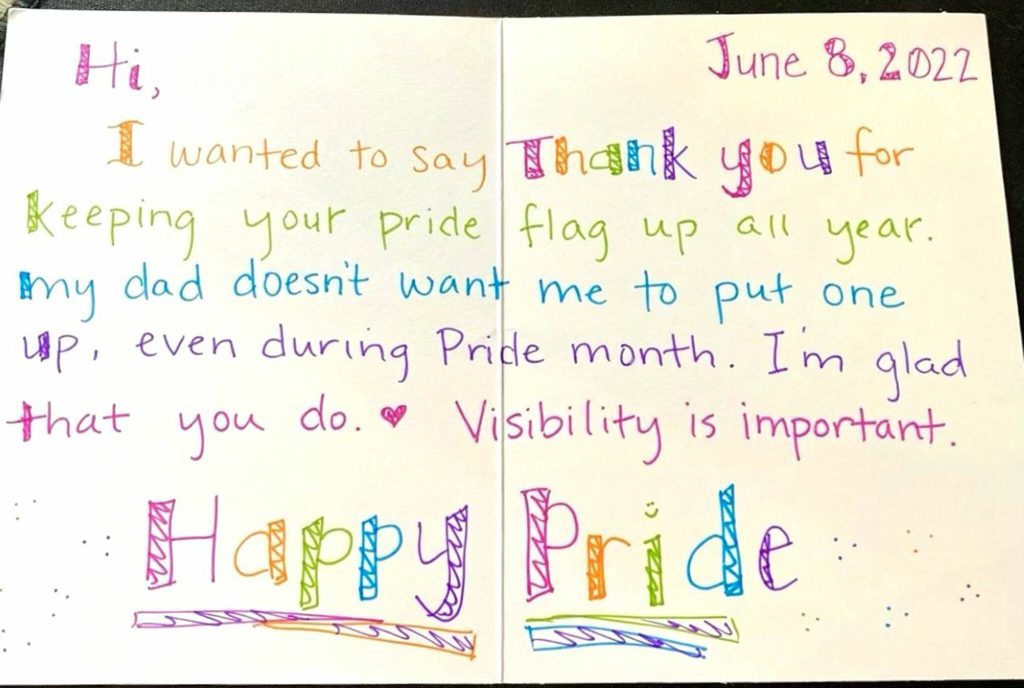 Hi,
June 8, 2022
I wanted to say Thank you for
keeping your pride flag up all year.
my dad doesn't want me to put one
up, even during Pride month. I'm glad
that you do. ♥ Visibility is important.
Happy Pride